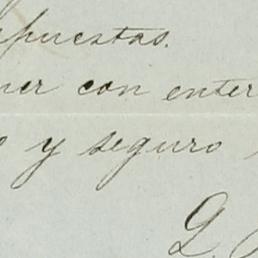 puestas.
ner con enter
o y seguro
Q.